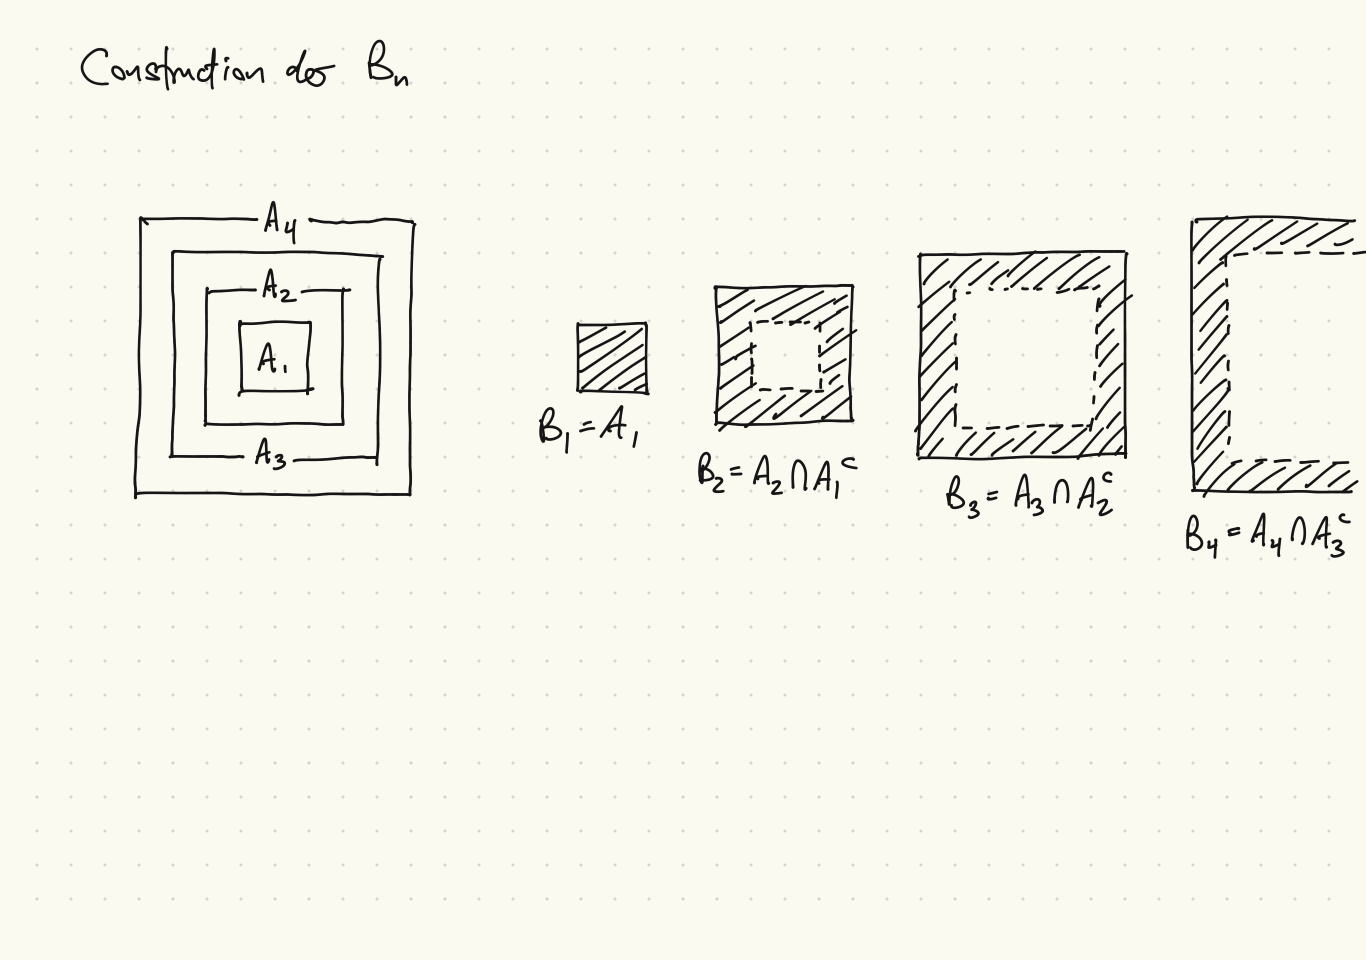 Construction des Bₙ
A₄
A₂
A₁
A₃
B₁ = A₁
B₂ = A₂ ∩ A₁ᶜ
B₃ = A₃ ∩ A₂ᶜ
B₄ = A₄ ∩ A₃ᶜ